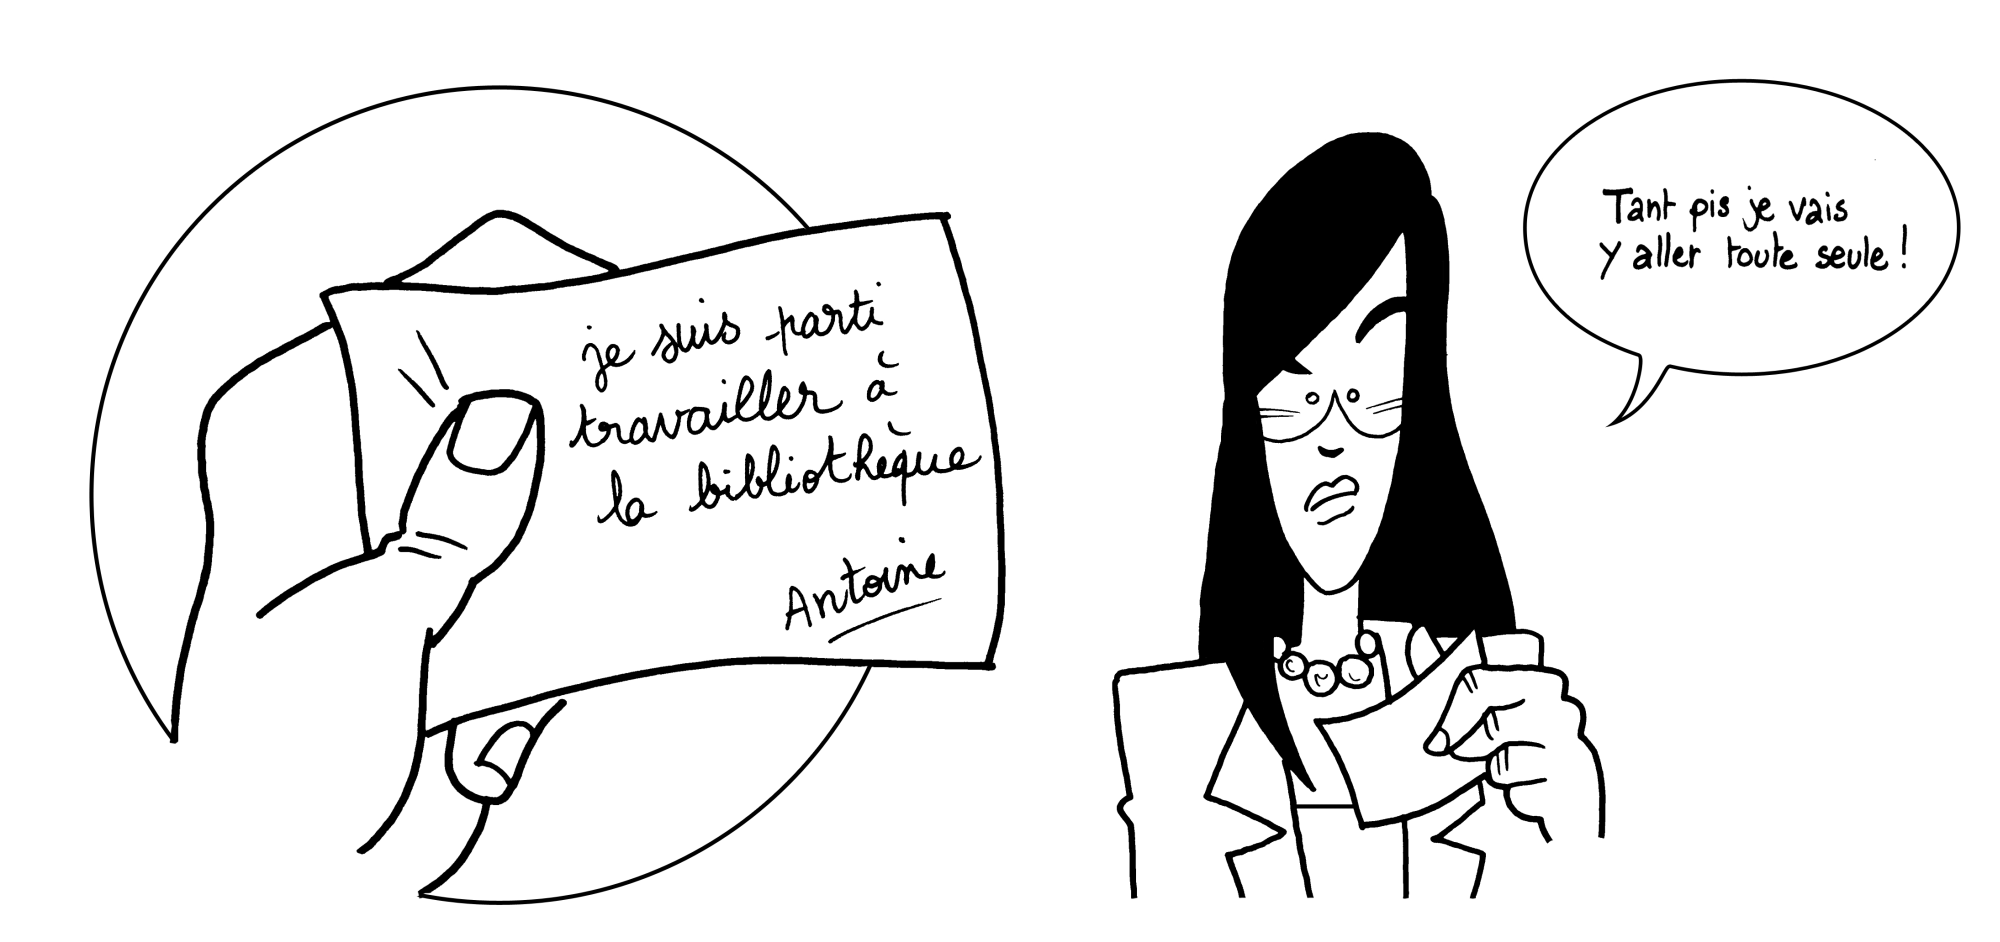 je suis parti
travailler à
la bibliothèque
Antoine
Tant pis je vais
y aller toute seule !